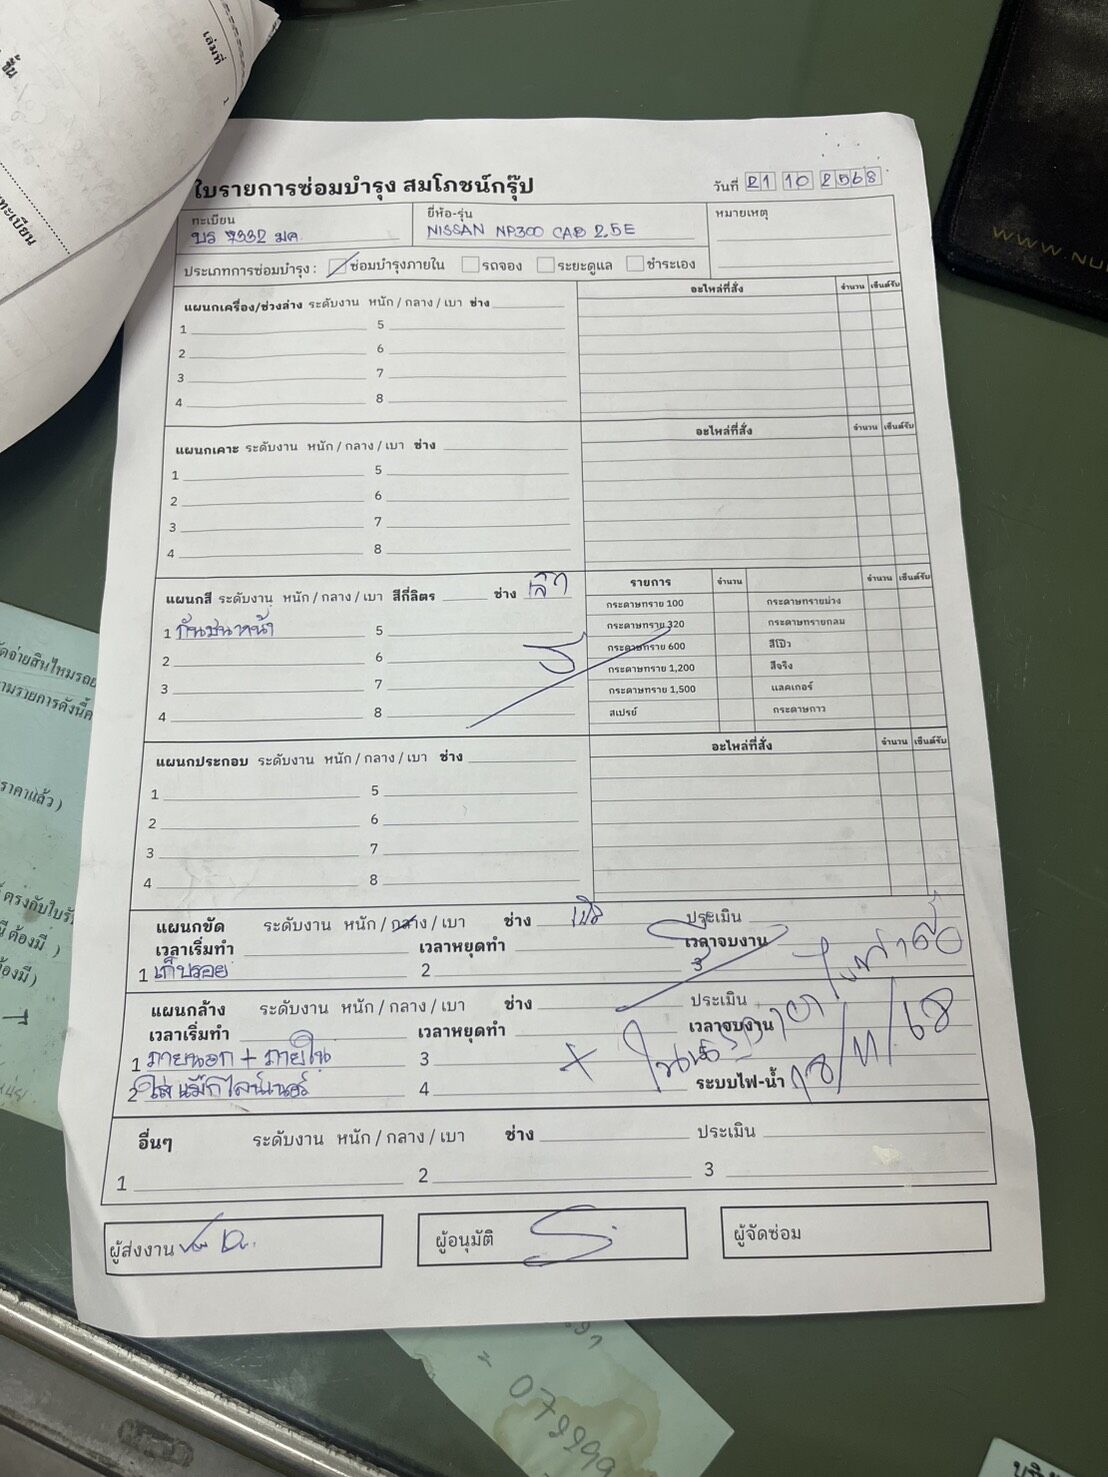 ใบรายการซ่อมบำรุง สมโภชน์กรุ๊ป
วันที่ 21 10 2568
ทะเบียน บร 7332 มค.
ยี่ห้อ-รุ่น NISSAN NP300 CAB 2.5E
หมายเหตุ
ประเภทการซ่อมบำรุง : ซ่อมบำรุงภายใน รถจอง ระยะดูแล ชำระเอง
แผนกเครื่อง/ช่วงล่าง ระดับงาน หนัก / กลาง / เบา ช่าง
อะไหล่ที่สั่ง จำนวน เซ็นต์รับ
1 5
2 6
3 7
4 8
แผนกเคาะ ระดับงาน หนัก / กลาง / เบา ช่าง
อะไหล่ที่สั่ง จำนวน เซ็นต์รับ
1 5
2 6
3 7
4 8
แผนกสี ระดับงาน หนัก / กลาง / เบา สีกี่ลิตร ช่าง
รายการ จำนวน จำนวน เซ็นต์รับ
1 กันชนหน้า 5
2 6
3 7
4 8
กระดาษทราย 100 กระดาษทรายม่วง
กระดาษทราย 320 กระดาษทรายกลม
กระดาษทราย 600 สีโป๊ว
กระดาษทราย 1,200 สีจริง
กระดาษทราย 1,500 แลคเกอร์
สเปรย์ กระดาษกาว
แผนกประกอบ ระดับงาน หนัก / กลาง / เบา ช่าง
อะไหล่ที่สั่ง จำนวน เซ็นต์รับ
1 5
2 6
3 7
4 8
แผนกขัด ระดับงาน หนัก / กลาง / เบา ช่าง ประเมิน
เวลาเริ่มทำ เวลาหยุดทำ เวลาจบงาน
1 เก็บรอย 2 3
แผนกล้าง ระดับงาน หนัก / กลาง / เบา ช่าง ประเมิน
เวลาเริ่มทำ เวลาหยุดทำ เวลาจบงาน
1 ภายนอก + ภายใน 3 5
2 ใส่แม็กไลน์เนอร์ 4 ระบบไฟ-น้ำ
อื่นๆ ระดับงาน หนัก / กลาง / เบา ช่าง ประเมิน
1 2 3
ผู้ส่งงาน
ผู้อนุมัติ
ผู้จัดซ่อม
เล่มที่
ราคาแล้ว )
ต้องมี )